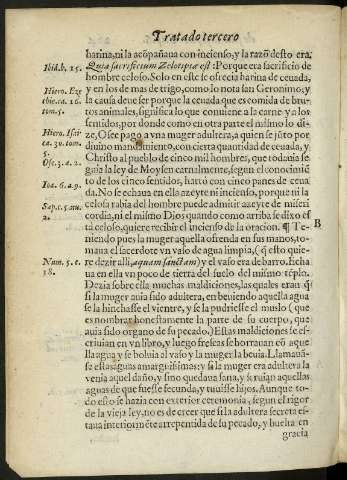 Tratado tercero
harina, ni la acõpañaua con incienso, y la razõ desto era,
Ibid. b. 15.
Quia sacrificium Zelotipiæ est: Porque era sacrificio de
hombre celoso. Solo en este se ofrecia harina de ceuada,
Hiero. Eze
y en los de mas de trigo, como lo nota san Geronimo; y
thie. ca. 16.
la causa deue ser porque la ceuada que es comida de bru-
tom. 5.
tos animales, significa lo que conuiene a la carne y a los
sentidos, por donde como en otra parte el mismo lo di-
Hiero. Isai
ze, Osee pago a vna muger adultera, a quien se jũto por
ca. 30. tom.
diuino mandamiento, con cierta quantidad de ceuada, y
5.
Christo al pueblo de cinco mil hombres, que todauia se
Ose. 3. a. 2.
guia la ley de Moysen carnalmente, segun el conocimiẽ
Ioa. 6. a 9.
to de los cinco sentidos, harto con cinco panes de ceua
da. No se echaua en ella azeyte ni incienso, porque ni la
Sap. c. 5. nu.
celosa rabia del hombre puede admitir azeyte de miseri
2.
cordia, ni el mismo Dios quando como arriba se dixo es
ta celoso, quiere recibir el incienso de la oracion. ¶ Te-
B
niendo pues la muger aquella ofrenda en sus manos, to-
maua el sacerdote vn vaso de agua limpia, (q̃ esto quie-
Num. 5. c.
re dezir alli, aquam sanctam) y el vaso era de barro. Echa
18.
ua en ella vn poco de tierra del suelo del mismo tẽplo.
Dezia sobre ella muchas maldiciones, las quales eran q̃
si la muger auia sido adultera, en beuiendo aquella agua
se la hinchasse el vientre, y se la pudriesse el muslo (que
es nombrar honestamente la parte de su cuerpo, que
auia sido organo de su pecado.) Estas maldiciones se es-
criuian en vn libro, y luego frescas se borrauan cõ aque
lla agua y se boluia al vaso y la muger la beuia. Llamauã-
se estas aguas amarguissimas: y si la muger era adultera la
venia aquel daño, y sino quedaua sana, y seruian aquellas
aguas de que fuesse fecunda, y tuuiesse hijos. Aunque to-
do esto se hazia con exterior ceremonia, segun el rigor
de la vieja ley, no es de creer que si la adultera secreta es-
taua interiormẽte arrepentida de su pecado, y buelta en
gracia